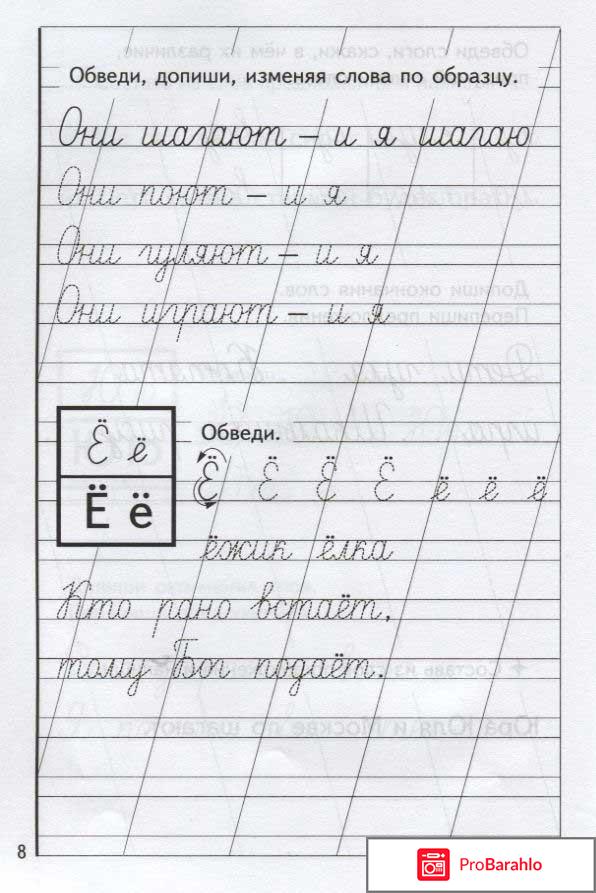 Обведи, допиши, изменяя слова по образцу.
Они шагают – и я шагаю
Они поют – и я
Они гуляют – и я
Они играют – и я
Ё ё
Ё ё
Обведи.
Ё Ё Ё Ё ё ё ё
ёжик ёлка
Кто рано встаёт,
тому Бог подаёт.
8
ProBarahlo